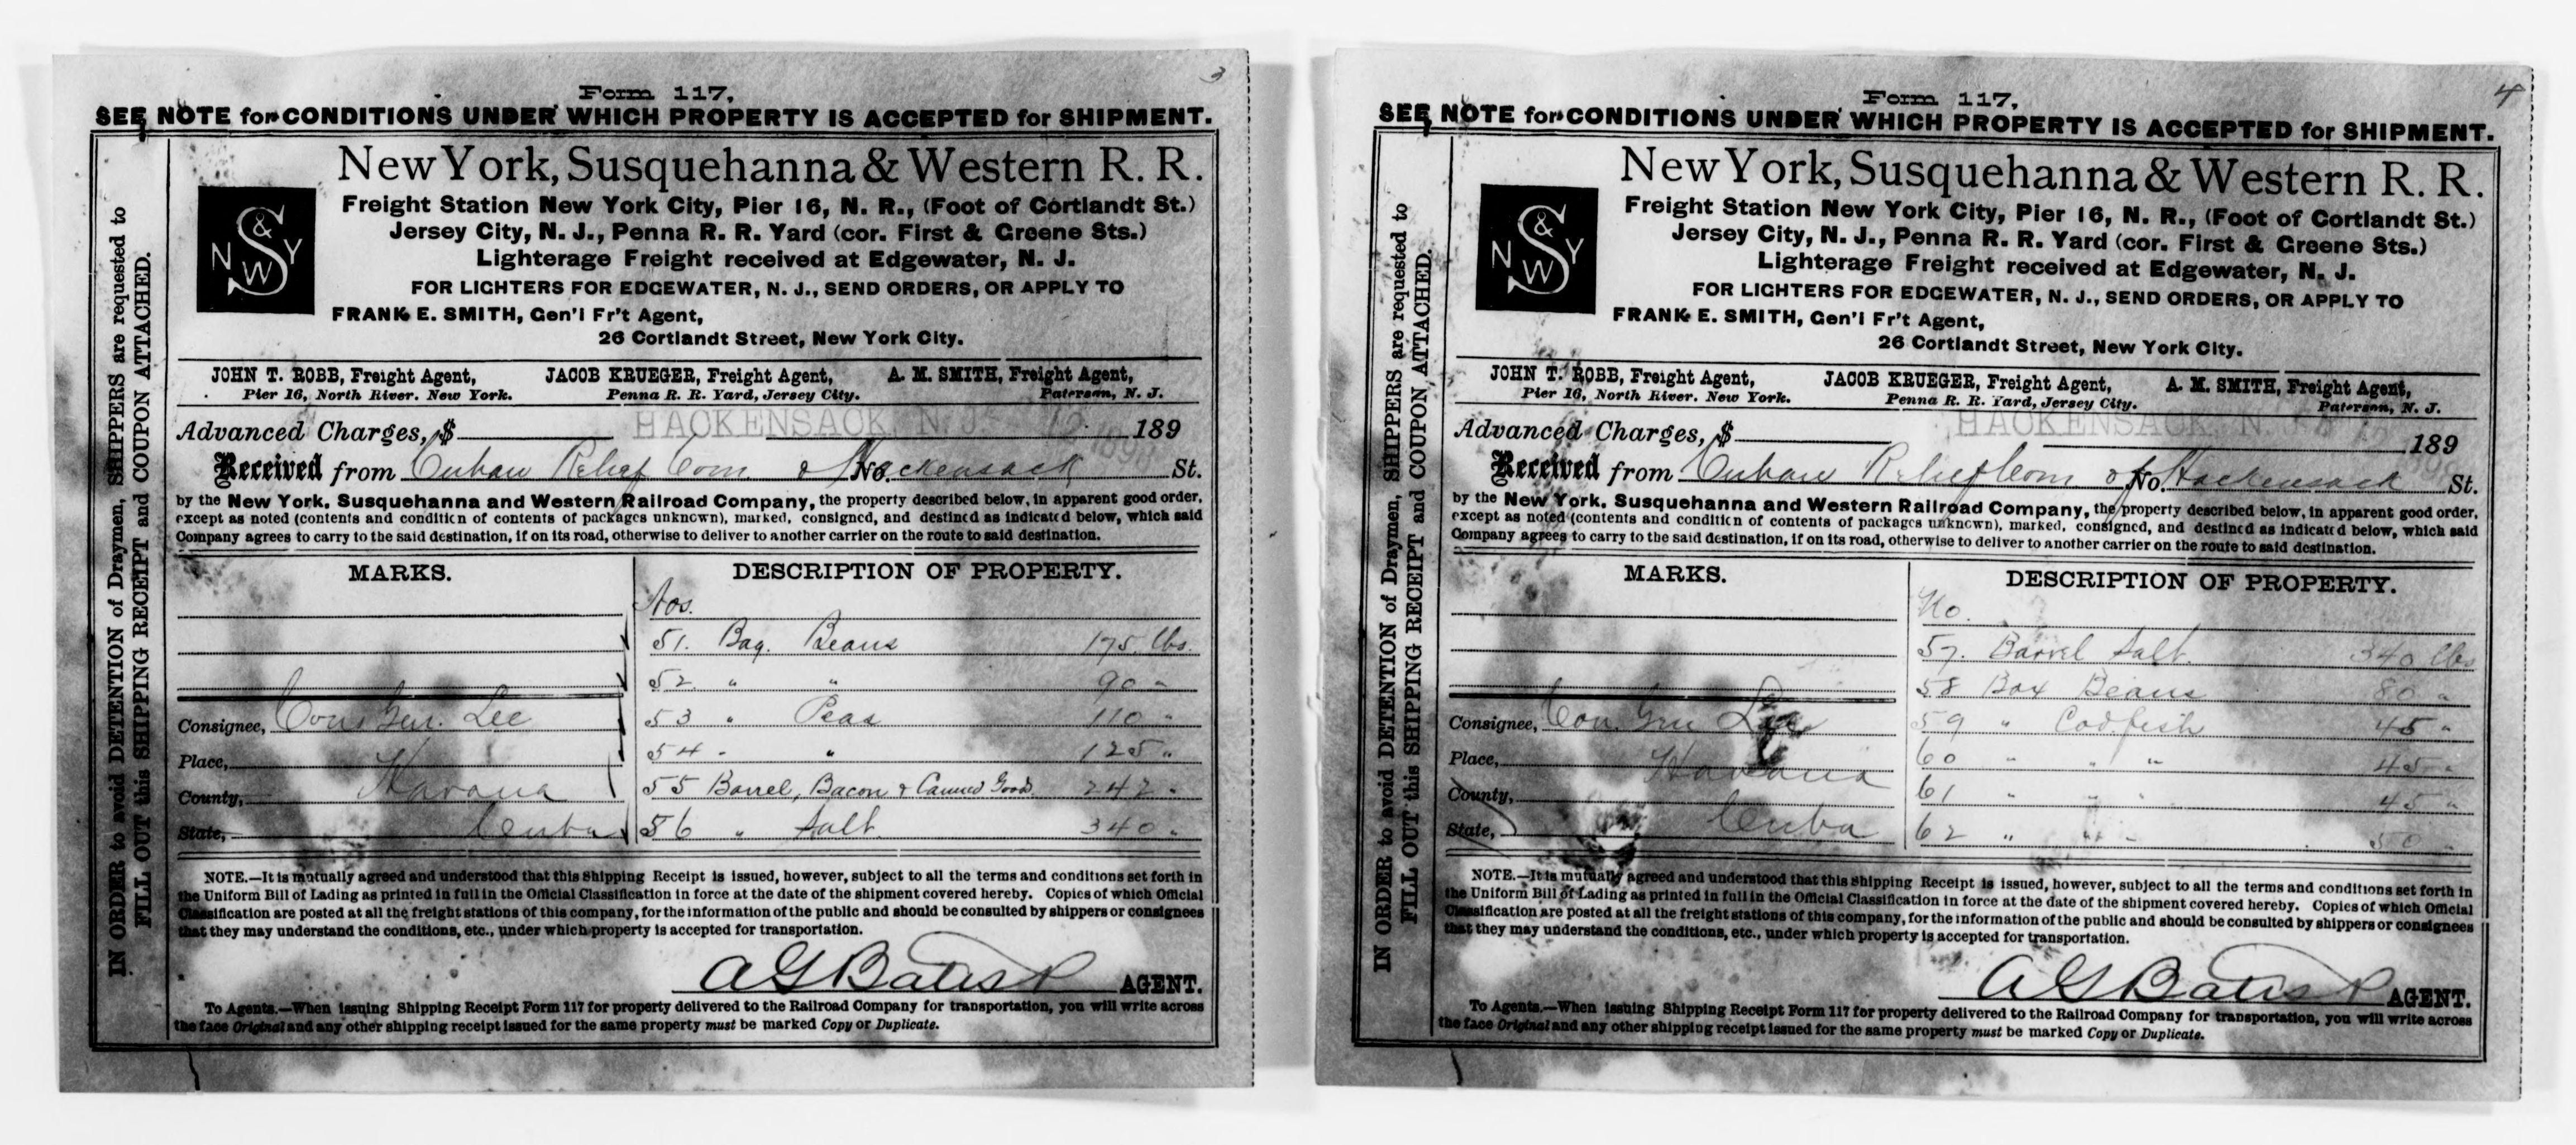 3
Form 117,
SEE NOTE for CONDITIONS UNDER WHICH PROPERTY IS ACCEPTED for SHIPMENT.
IN ORDER to avoid DETENTION of Draymen, SHIPPERS are requested to
FILL OUT this SHIPPING RECEIPT and COUPON ATTACHED.
N Y S & W
New York, Susquehanna & Western R. R.
Freight Station New York City, Pier 16, N. R., (Foot of Cortlandt St.)
Jersey City, N. J., Penna R. R. Yard (cor. First & Greene Sts.)
Lighterage Freight received at Edgewater, N. J.
FOR LIGHTERS FOR EDGEWATER, N. J., SEND ORDERS, OR APPLY TO
FRANK E. SMITH, Gen'l Fr't Agent,
26 Cortlandt Street, New York City.
JOHN T. ROBB, Freight Agent, JACOB KRUEGER, Freight Agent, A. M. SMITH, Freight Agent,
Pier 16, North River. New York. Penna R. R. Yard, Jersey City. Paterson, N. J.
HACKENSACK N.
Advanced Charges, $ 189
Received from Cuban Relief Com. of No. Hackensack St.
by the New York, Susquehanna and Western Railroad Company, the property described below, in apparent good order,
except as noted (contents and condition of contents of packages unknown), marked, consigned, and destined as indicated below, which said
Company agrees to carry to the said destination, if on its road, otherwise to deliver to another carrier on the route to said destination.
MARKS. DESCRIPTION OF PROPERTY.
Nos.
51. Bag. Beans 175 lbs.
52. " " 90 "
53 " Peas 110 "
54 " " 125 "
55 Barrel, Bacon & Canned Goods 242 "
56 " Salt 340 "
Consignee, Cons Gen. Lee
Place,
County, Havana
State, Cuba
NOTE.—It is mutually agreed and understood that this Shipping Receipt is issued, however, subject to all the terms and conditions set forth in
the Uniform Bill of Lading as printed in full in the Official Classification in force at the date of the shipment covered hereby. Copies of which Official
Classification are posted at all the freight stations of this company, for the information of the public and should be consulted by shippers or consignees
that they may understand the conditions, etc., under which property is accepted for transportation.
AGENT.
To Agents.—When issuing Shipping Receipt Form 117 for property delivered to the Railroad Company for transportation, you will write across
the face Original and any other shipping receipt issued for the same property must be marked Copy or Duplicate.
4
Form 117,
SEE NOTE for CONDITIONS UNDER WHICH PROPERTY IS ACCEPTED for SHIPMENT.
IN ORDER to avoid DETENTION of Draymen, SHIPPERS are requested to
FILL OUT this SHIPPING RECEIPT and COUPON ATTACHED.
N Y S & W
New York, Susquehanna & Western R. R.
Freight Station New York City, Pier 16, N. R., (Foot of Cortlandt St.)
Jersey City, N. J., Penna R. R. Yard (cor. First & Greene Sts.)
Lighterage Freight received at Edgewater, N. J.
FOR LIGHTERS FOR EDGEWATER, N. J., SEND ORDERS, OR APPLY TO
FRANK E. SMITH, Gen'l Fr't Agent,
26 Cortlandt Street, New York City.
JOHN T. ROBB, Freight Agent, JACOB KRUEGER, Freight Agent, A. M. SMITH, Freight Agent,
Pier 16, North River. New York. Penna R. R. Yard, Jersey City. Paterson, N. J.
HACKENSACK, N. J.
Advanced Charges, $ 189
Received from Cuban Relief Com of No. Hackensack St.
by the New York, Susquehanna and Western Railroad Company, the property described below, in apparent good order,
except as noted (contents and condition of contents of packages unknown), marked, consigned, and destined as indicated below, which said
Company agrees to carry to the said destination, if on its road, otherwise to deliver to another carrier on the route to said destination.
MARKS. DESCRIPTION OF PROPERTY.
No.
57. Barrel Salt. 340 lbs
58 Box Beans 80 "
59 " Codfish 45 "
60 " " " 45 "
61 " " " 45 "
62 " " " 50 "
Consignee, Con. Gen Lee
Place, Havana
County,
State, Cuba
NOTE.—It is mutually agreed and understood that this Shipping Receipt is issued, however, subject to all the terms and conditions set forth in
the Uniform Bill of Lading as printed in full in the Official Classification in force at the date of the shipment covered hereby. Copies of which Official
Classification are posted at all the freight stations of this company, for the information of the public and should be consulted by shippers or consignees
that they may understand the conditions, etc., under which property is accepted for transportation.
AGENT.
To Agents.—When issuing Shipping Receipt Form 117 for property delivered to the Railroad Company for transportation, you will write across
the face Original and any other shipping receipt issued for the same property must be marked Copy or Duplicate.